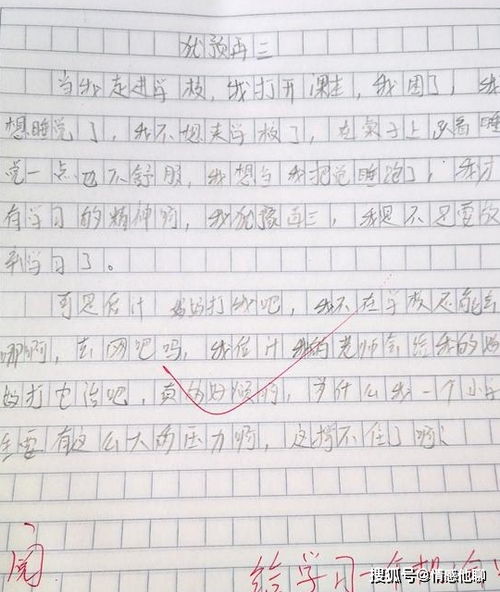 犹预再三
当我走进学校,我打开课本,我困了,我
想睡觉了,我不想来学校了,在桌子上趴着睡
觉一点也不舒服,我想等我把觉睡饱了,我才
有学习的精神啊,我犹豫再三,我是不是要放
弃学习了。
可是估计妈妈打我吧,我不在学校还能去
哪啊,去网吧吗,我估计我的老师会给我的妈
妈打电话吧,真的好烦啊,为什么我一个小学
生要有这么大的压力啊,这撑不住了啊!
阅
给学习一个
搜狐号@情感他聊